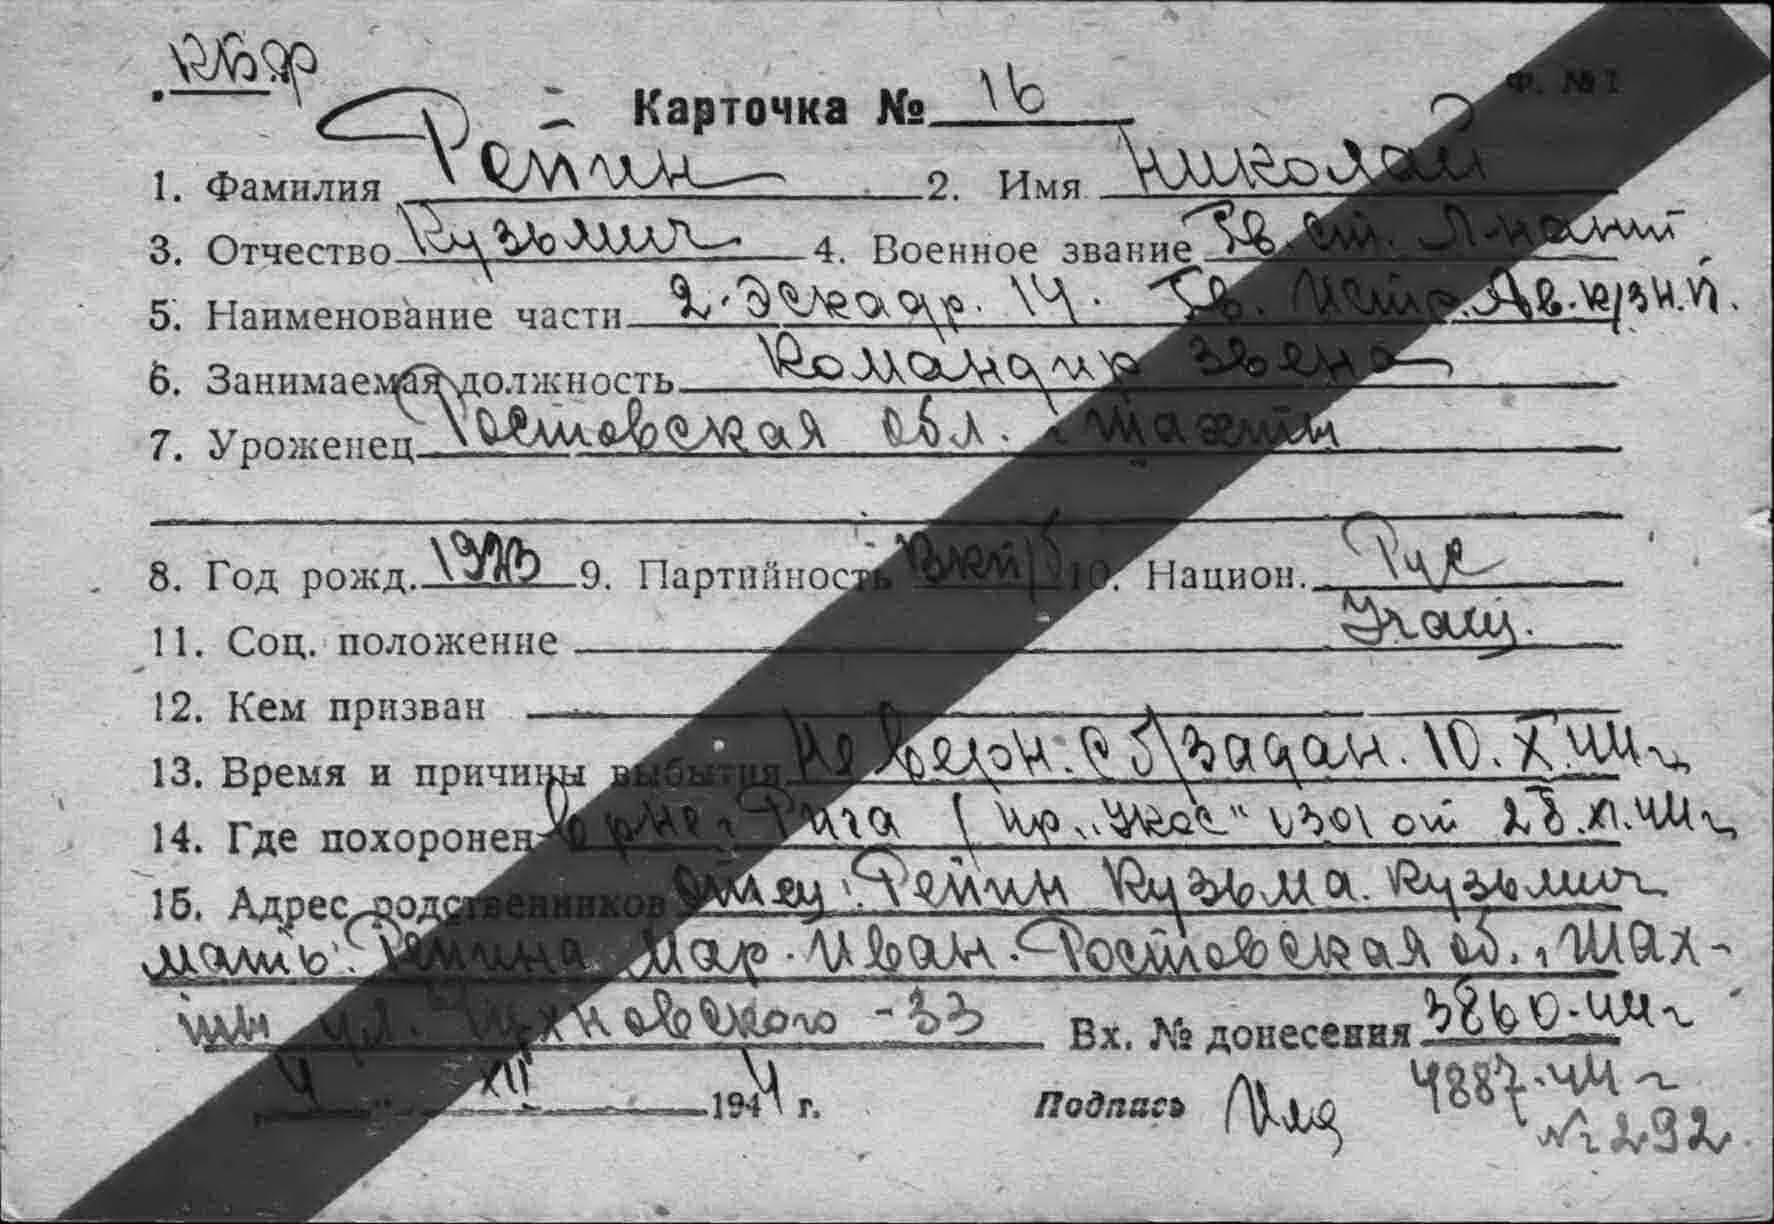 КБФ
Ф. № 1
Карточка № 16
1. Фамилия Репин 2. Имя Николай
3. Отчество Кузьмич 4. Военное звание Гв. ст. л-нант
5. Наименование части 2. Эскадр. 14. Гв. Истр. Ав. к/зн. п.
6. Занимаемая должность Командир звена
7. Уроженец Ростовская обл. г. Шахты
8. Год рожд. 1923 9. Партийность ВКП/б 10. Национ. Рус
11. Соц. положение Учащ.
12. Кем призван
13. Время и причины выбытия Не верн. с б/задан. 10. X. 44 г
14. Где похоронен в р-не г Рига / пр. „ 0301 от 28. 44 г
15. Адрес родственников отец: Репин Кузьма. Кузьмич
мать: Репина Мар. Иван. Ростовская об. г. Шах-
ты ул. Чухновского - 33 Вх. № донесения 3860. 44 г
4 XII 1944 г. Подпись 4887. 44 г
№ 292